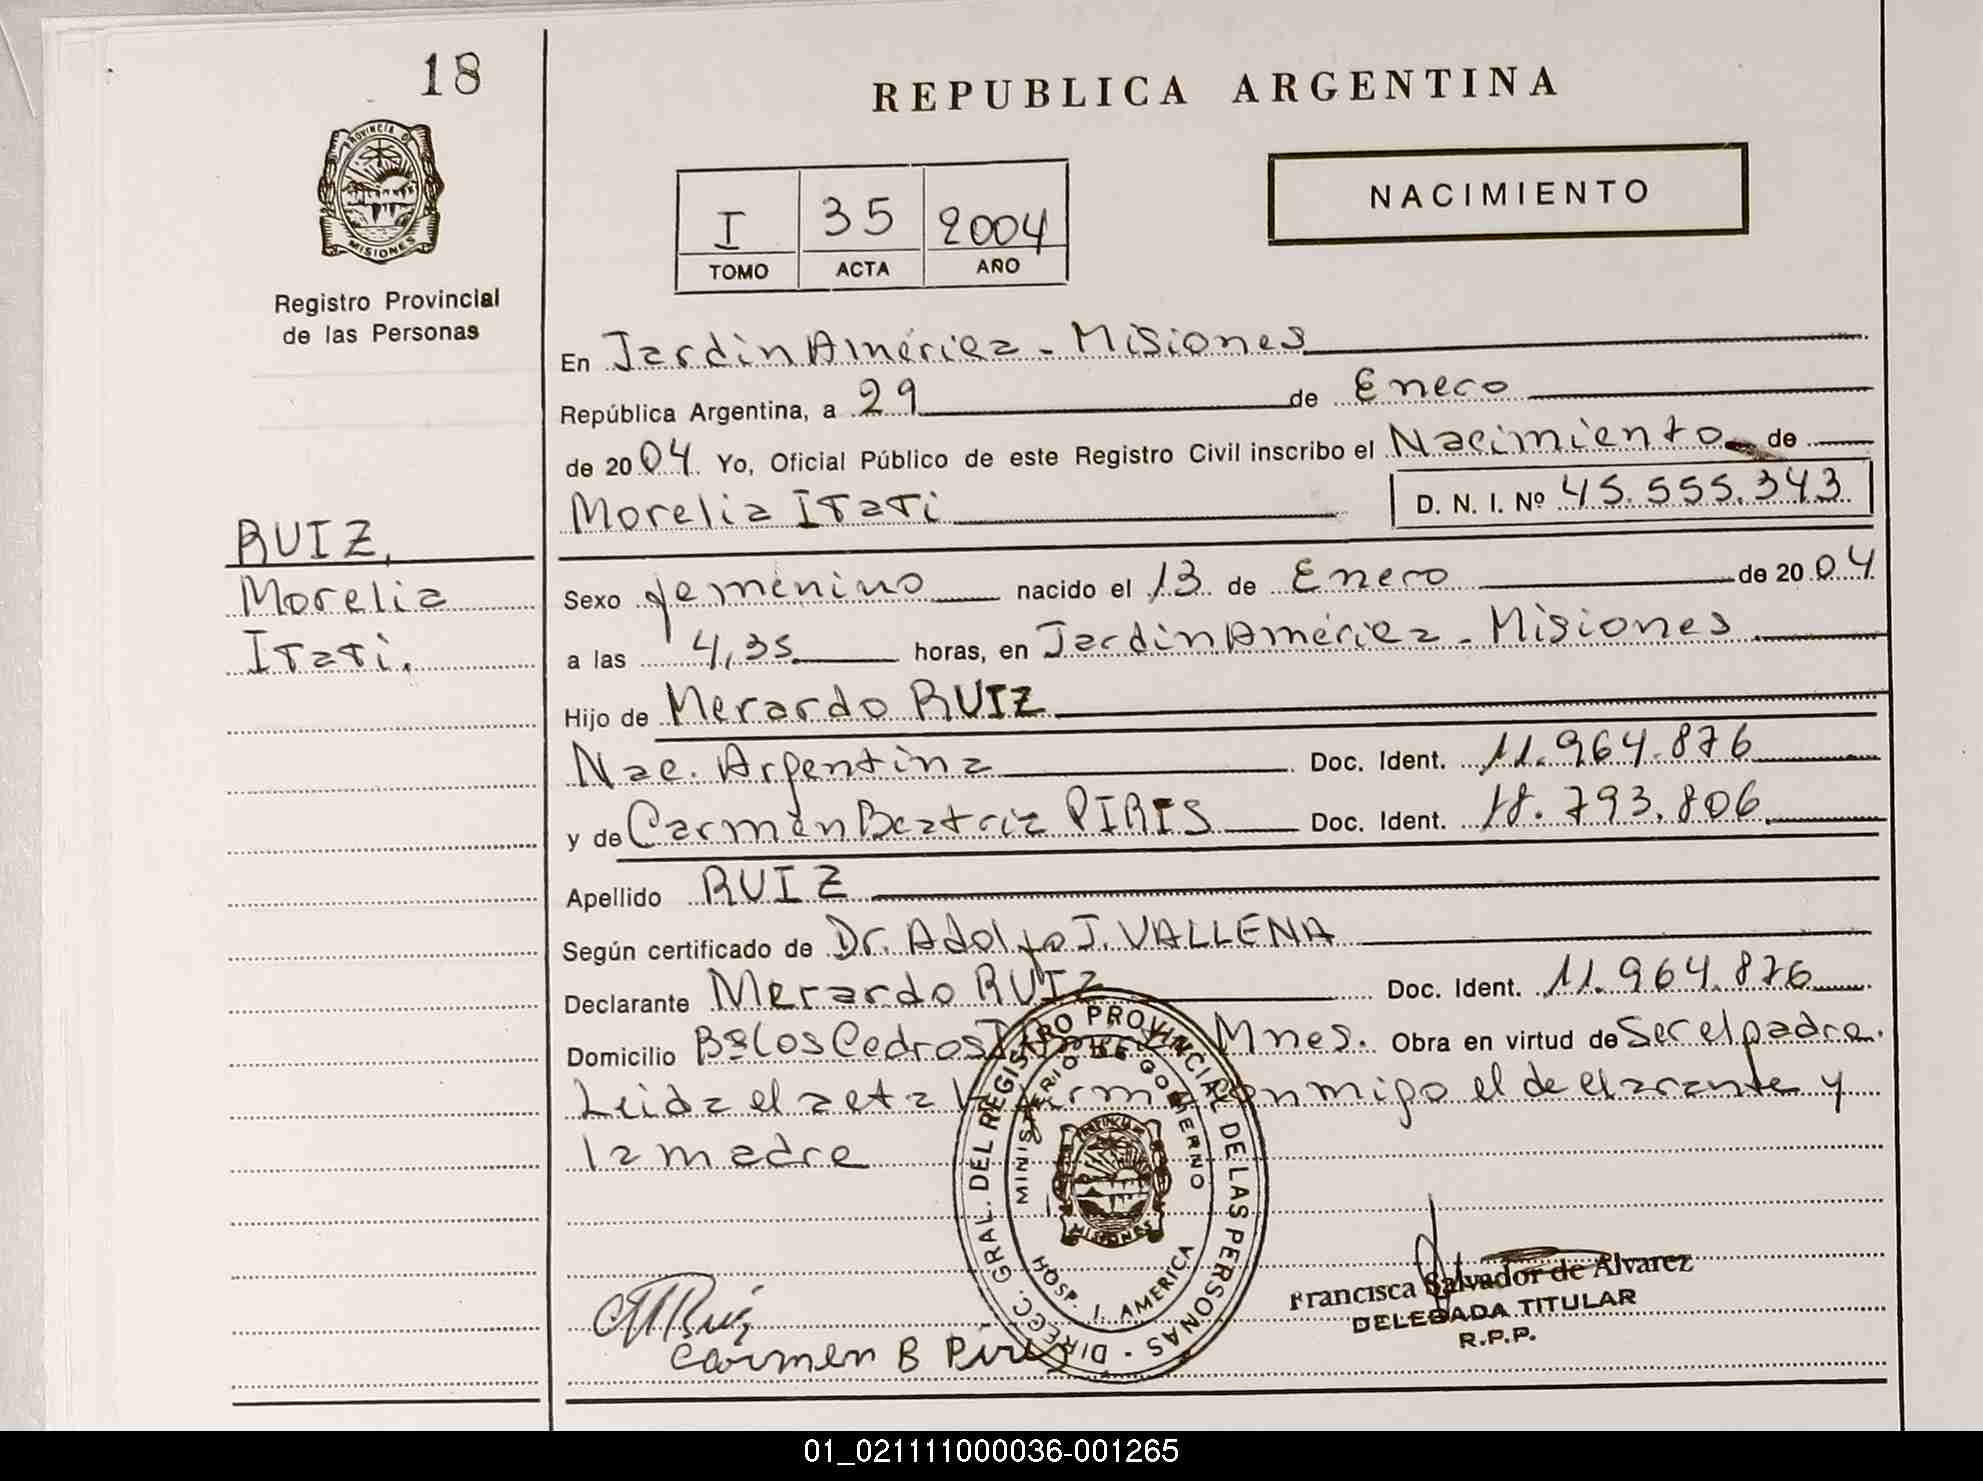 18
REPUBLICA ARGENTINA
PROVINCIA DE
MISIONES
Registro Provincial
de las Personas
NACIMIENTO
I 35 2004
TOMO ACTA AÑO
En Jardín América - Misiones
República Argentina, a 29 de Enero
de 2004. Yo, Oficial Público de este Registro Civil inscribo el Nacimiento de
Morelia Itatí D. N. I. Nº 45.555.343
RUIZ,
Morelia
Itatí.
Sexo femenino nacido el 13 de Enero de 2004
a las 4,35 horas, en Jardín América - Misiones
Hijo de Merardo RUIZ
Nac. Argentina Doc. Ident. 11.964.876
y de Carmen Beatriz PIRIS Doc. Ident. 18.793.806
Apellido RUIZ
Según certificado de Dr. Adolfo J. VALLENA
Declarante Merardo RUIZ Doc. Ident. 11.964.876
Domicilio Bº Los Cedros Mnes. Obra en virtud de Ser el padre.
Leida el acta conmigo el declarante y
la madre
DIRECC. GRAL. DEL REGISTRO PROVINCIAL DE LAS PERSONAS
MINISTERIO DE GOBIERNO
MISIONES
HOSP. J. AMERICA
M Ruiz
Carmen B Piris
Francisca Salvador de Alvarez
DELEGADA TITULAR
R.P.P.
01_021111000036-001265